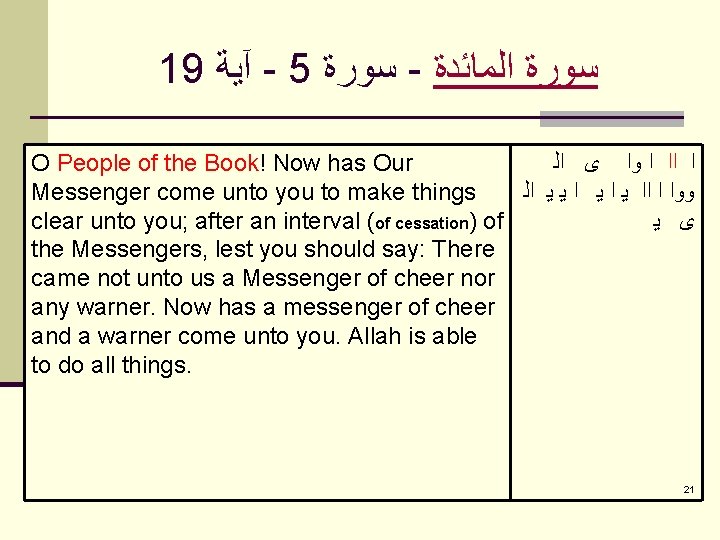 سورة المائدة - سورة 5 - آية 19
O People of the Book! Now has Our
Messenger come unto you to make things
clear unto you; after an interval (of cessation) of
the Messengers, lest you should say: There
came not unto us a Messenger of cheer nor
any warner. Now has a messenger of cheer
and a warner come unto you. Allah is able
to do all things.
ﺍ ﺍﺍ ﺍ ﻭﺍ ﻯ ﺍﻟ
ﻭﻭﺍ ﺍ ﺍﺍ ﻳ ﺍ ﻳ ﺍ ﻳ ﻳ ﺍﻟ
ﻯ ﻳ
21